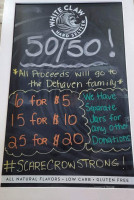 WHITE CLAW
HARD SELTZER
50/50!
*All Proceeds will go to
the Dehaven family*
6 for $5
15 for $10
25 for $20
We have
Separate
Jars for
any other
Donations
#SCARECROWSTRONG!
ALL NATURAL FLAVORS • LOW CARB • GLUTEN FREE